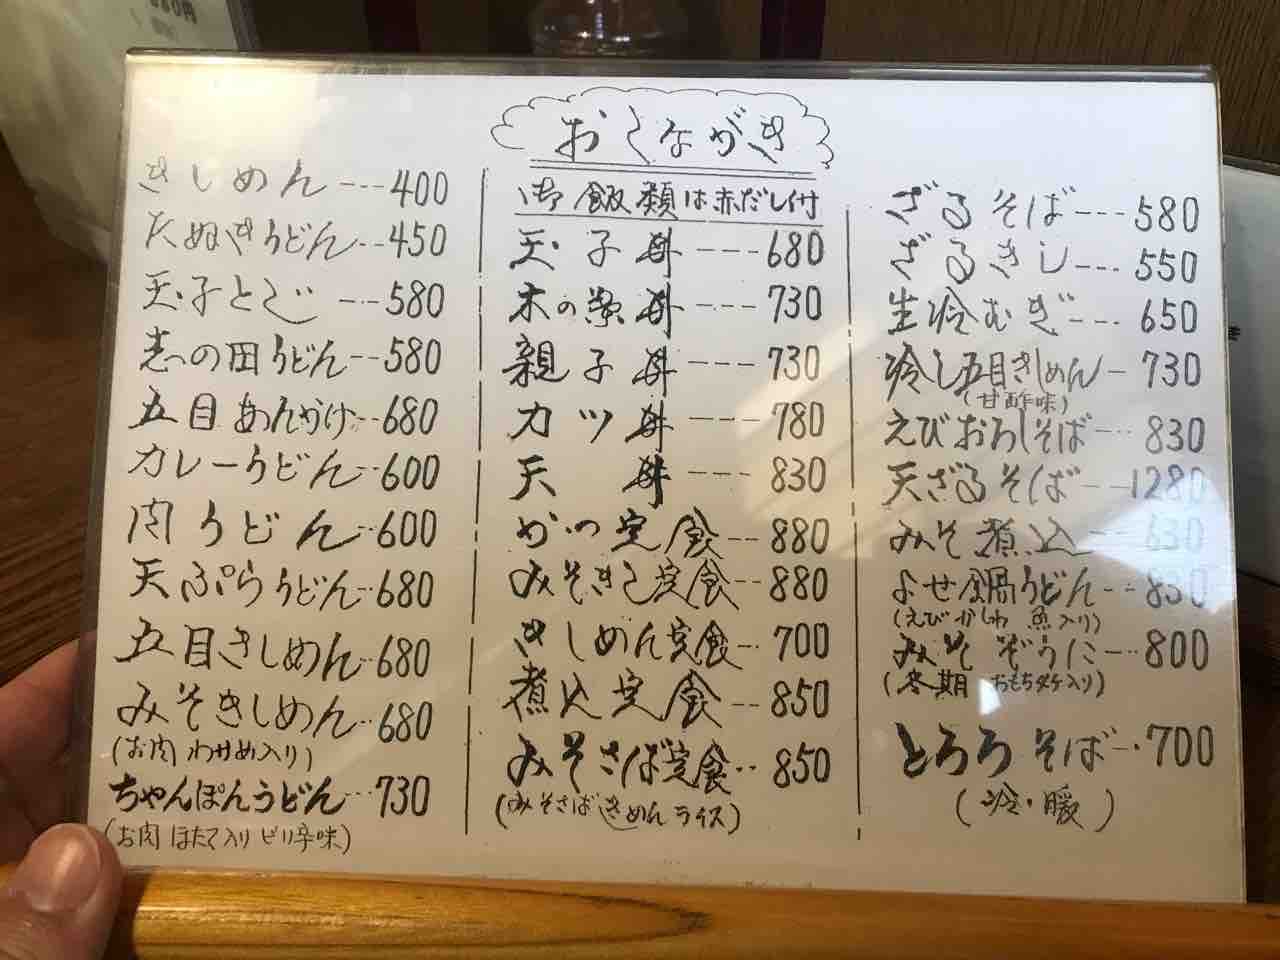 おしながき
きしめん---400
たぬきうどん---450
玉子とじ---580
志の田うどん---580
五目あんかけ---680
カレーうどん---600
肉うどん---600
天ぷらうどん---680
五目きしめん---680
みそきしめん---680
(お肉 わかめ入り)
ちゃんぽんうどん---730
(お肉 ほたて入り ピリ辛味)
御飯類は赤だし付
玉子丼---680
木の葉丼---730
親子丼---730
カツ丼---780
天丼---830
かつ定食---880
みそきし定食---880
きしめん定食---700
煮込定食---850
みそさば定食---850
(みそさば きしめん ライス)
ざるそば---580
ざるきし---550
生冷むぎ---650
冷し五目きしめん-730
(甘酢味)
えびおろしそば---830
天ざるそば---1280
みそ煮込---630
よせ鍋うどん---850
(えび かしわ 魚入り)
みそぞうに---800
(冬期 おもち2ケ入り)
とろろそば---700
(冷・暖)